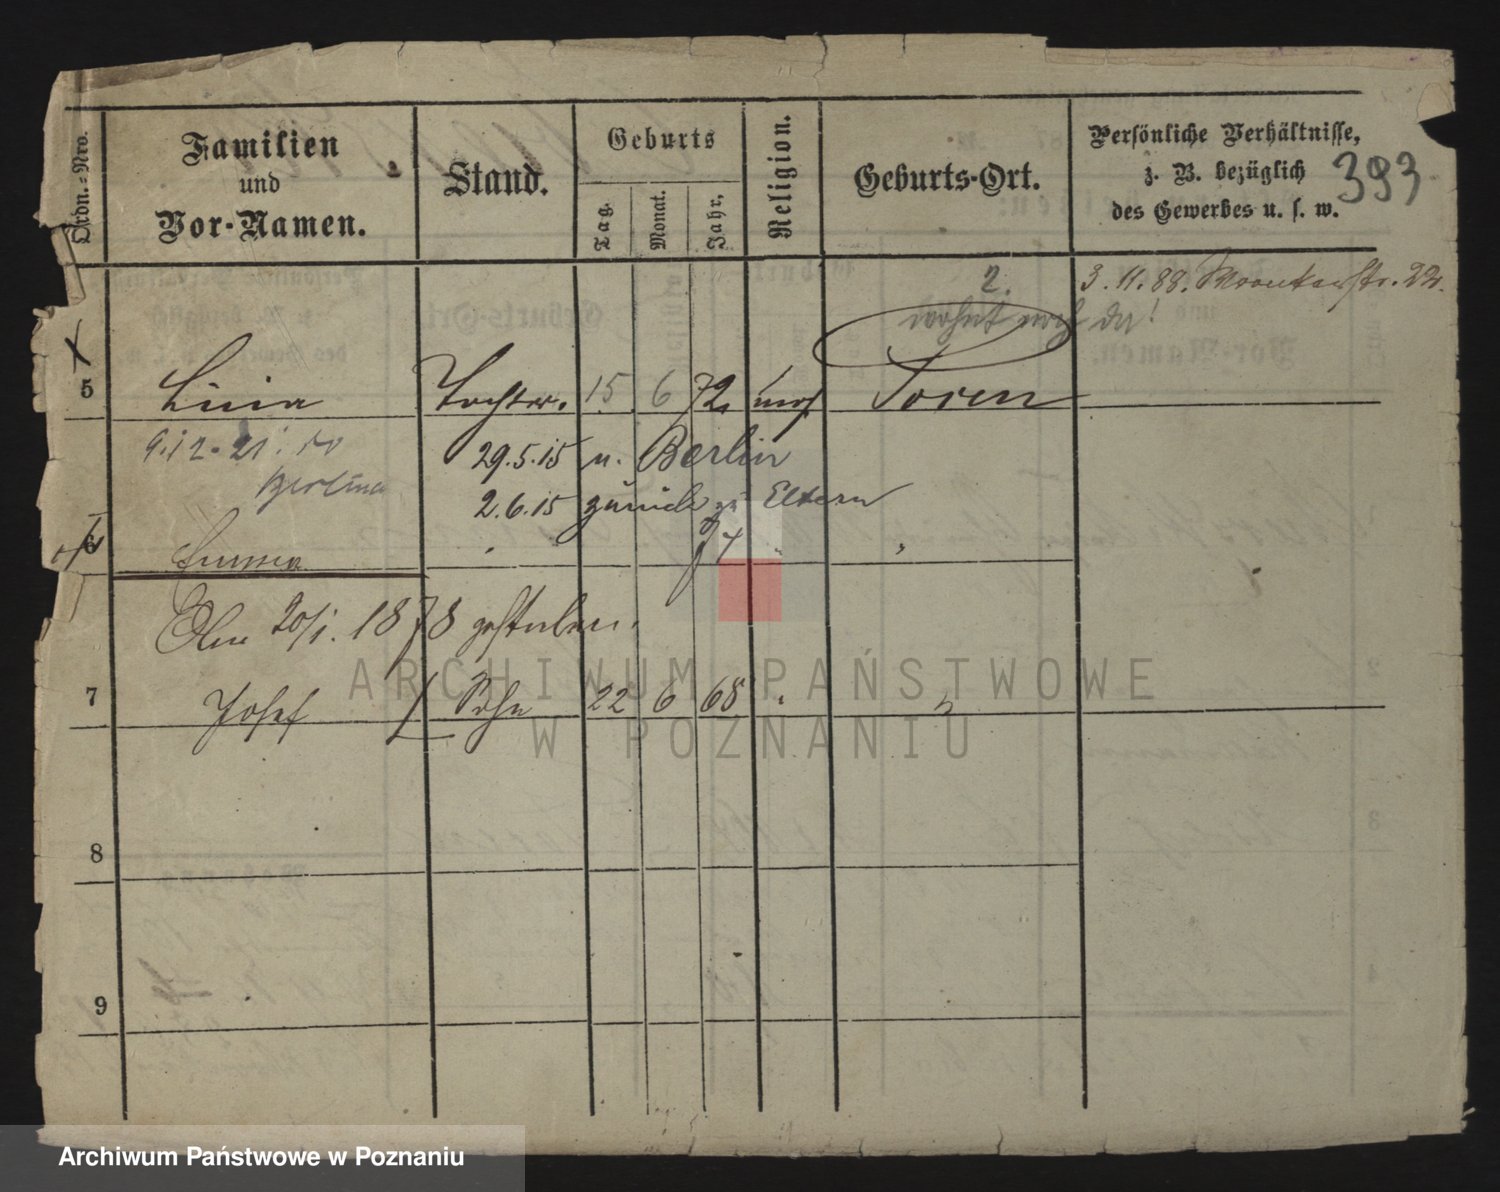 Ordn.-Nro.
Familien
und
Vor-Namen.
Stand.
Geburts
Tag.
Monat.
Jahr.
Religion.
Geburts-Ort.
Persönliche Verhältnisse,
z. B. bezüglich
des Gewerbes u. s. w.
393
2.
3. 11. 88.
wohnt noch da!
5 Tochter. 15 6 72 mos Posen
9.12.21.
29.5.15 n. Berlin
2.6.15 zurück zu Eltern
6 Emma " 74 " "
Am 20/1. 1878 gestorben.
7 Josef Sohn 22 6 68 " "
8
9
ARCHIWUM PAŃSTWOWE
W POZNANIU
Archiwum Państwowe w Poznaniu